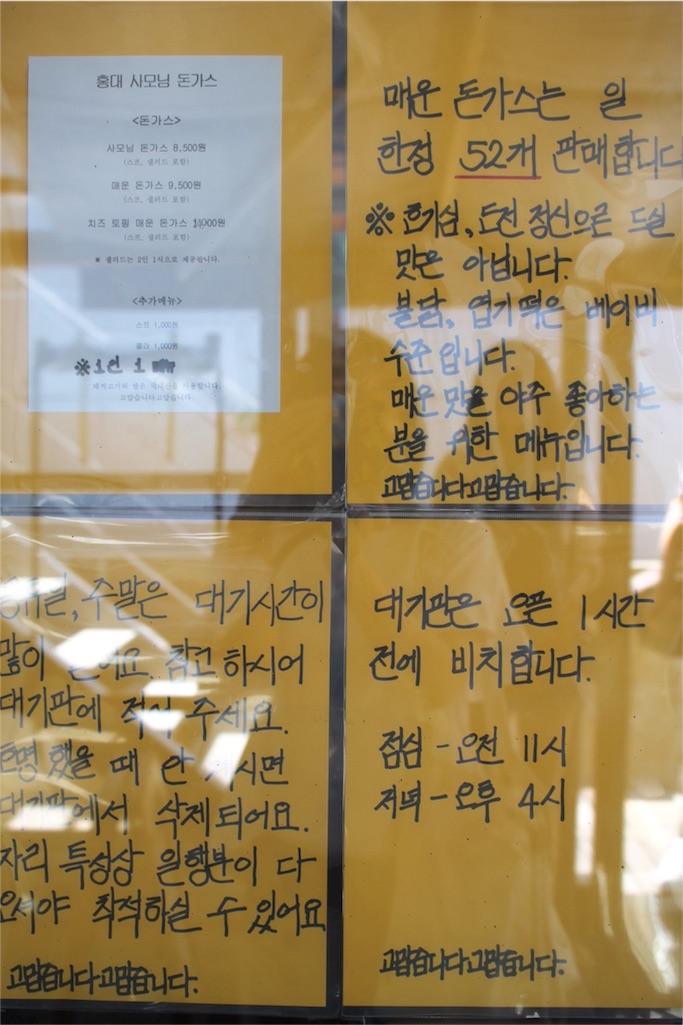 홍대 사모님 돈가스
<돈가스>
사모님 돈가스 8,500원
(스프, 샐러드 포함)
매운 돈가스 9,500원
(스프, 샐러드 포함)
치즈 토핑 매운 돈가스
(스프, 샐러드 포함)
※ 샐러드는 2인 1식으로 제공됩니다.
<추가메뉴>
스프 1,000원
콜라 1,000원
※1인 1 메뉴
고맙습니다고맙습니다
매운 돈가스는 일
한정 52개 판매합니다
※ 호기심, 도전 정신으로 드실
맛은 아닙니다.
불닭, 엽기떡은 베이비
수준 입니다.
매운 맛을 아주 좋아하는
분을 위한 메뉴입니다.
고맙습니다고맙습니다.
주말은 대기시간이
많이 참고 하시어
대기판에 적어 주세요.
호명 했을 때 안 계시면
대기판에서 삭제 되어요.
자리 특성상 일행분이 다
오셔야 착석하실 수 있어요
고맙습니다고맙습니다.
대기판은 오픈 1시간
전에 비치 합니다.
점심 - 오전 11시
저녁 - 오후 4시
고맙습니다고맙습니다.